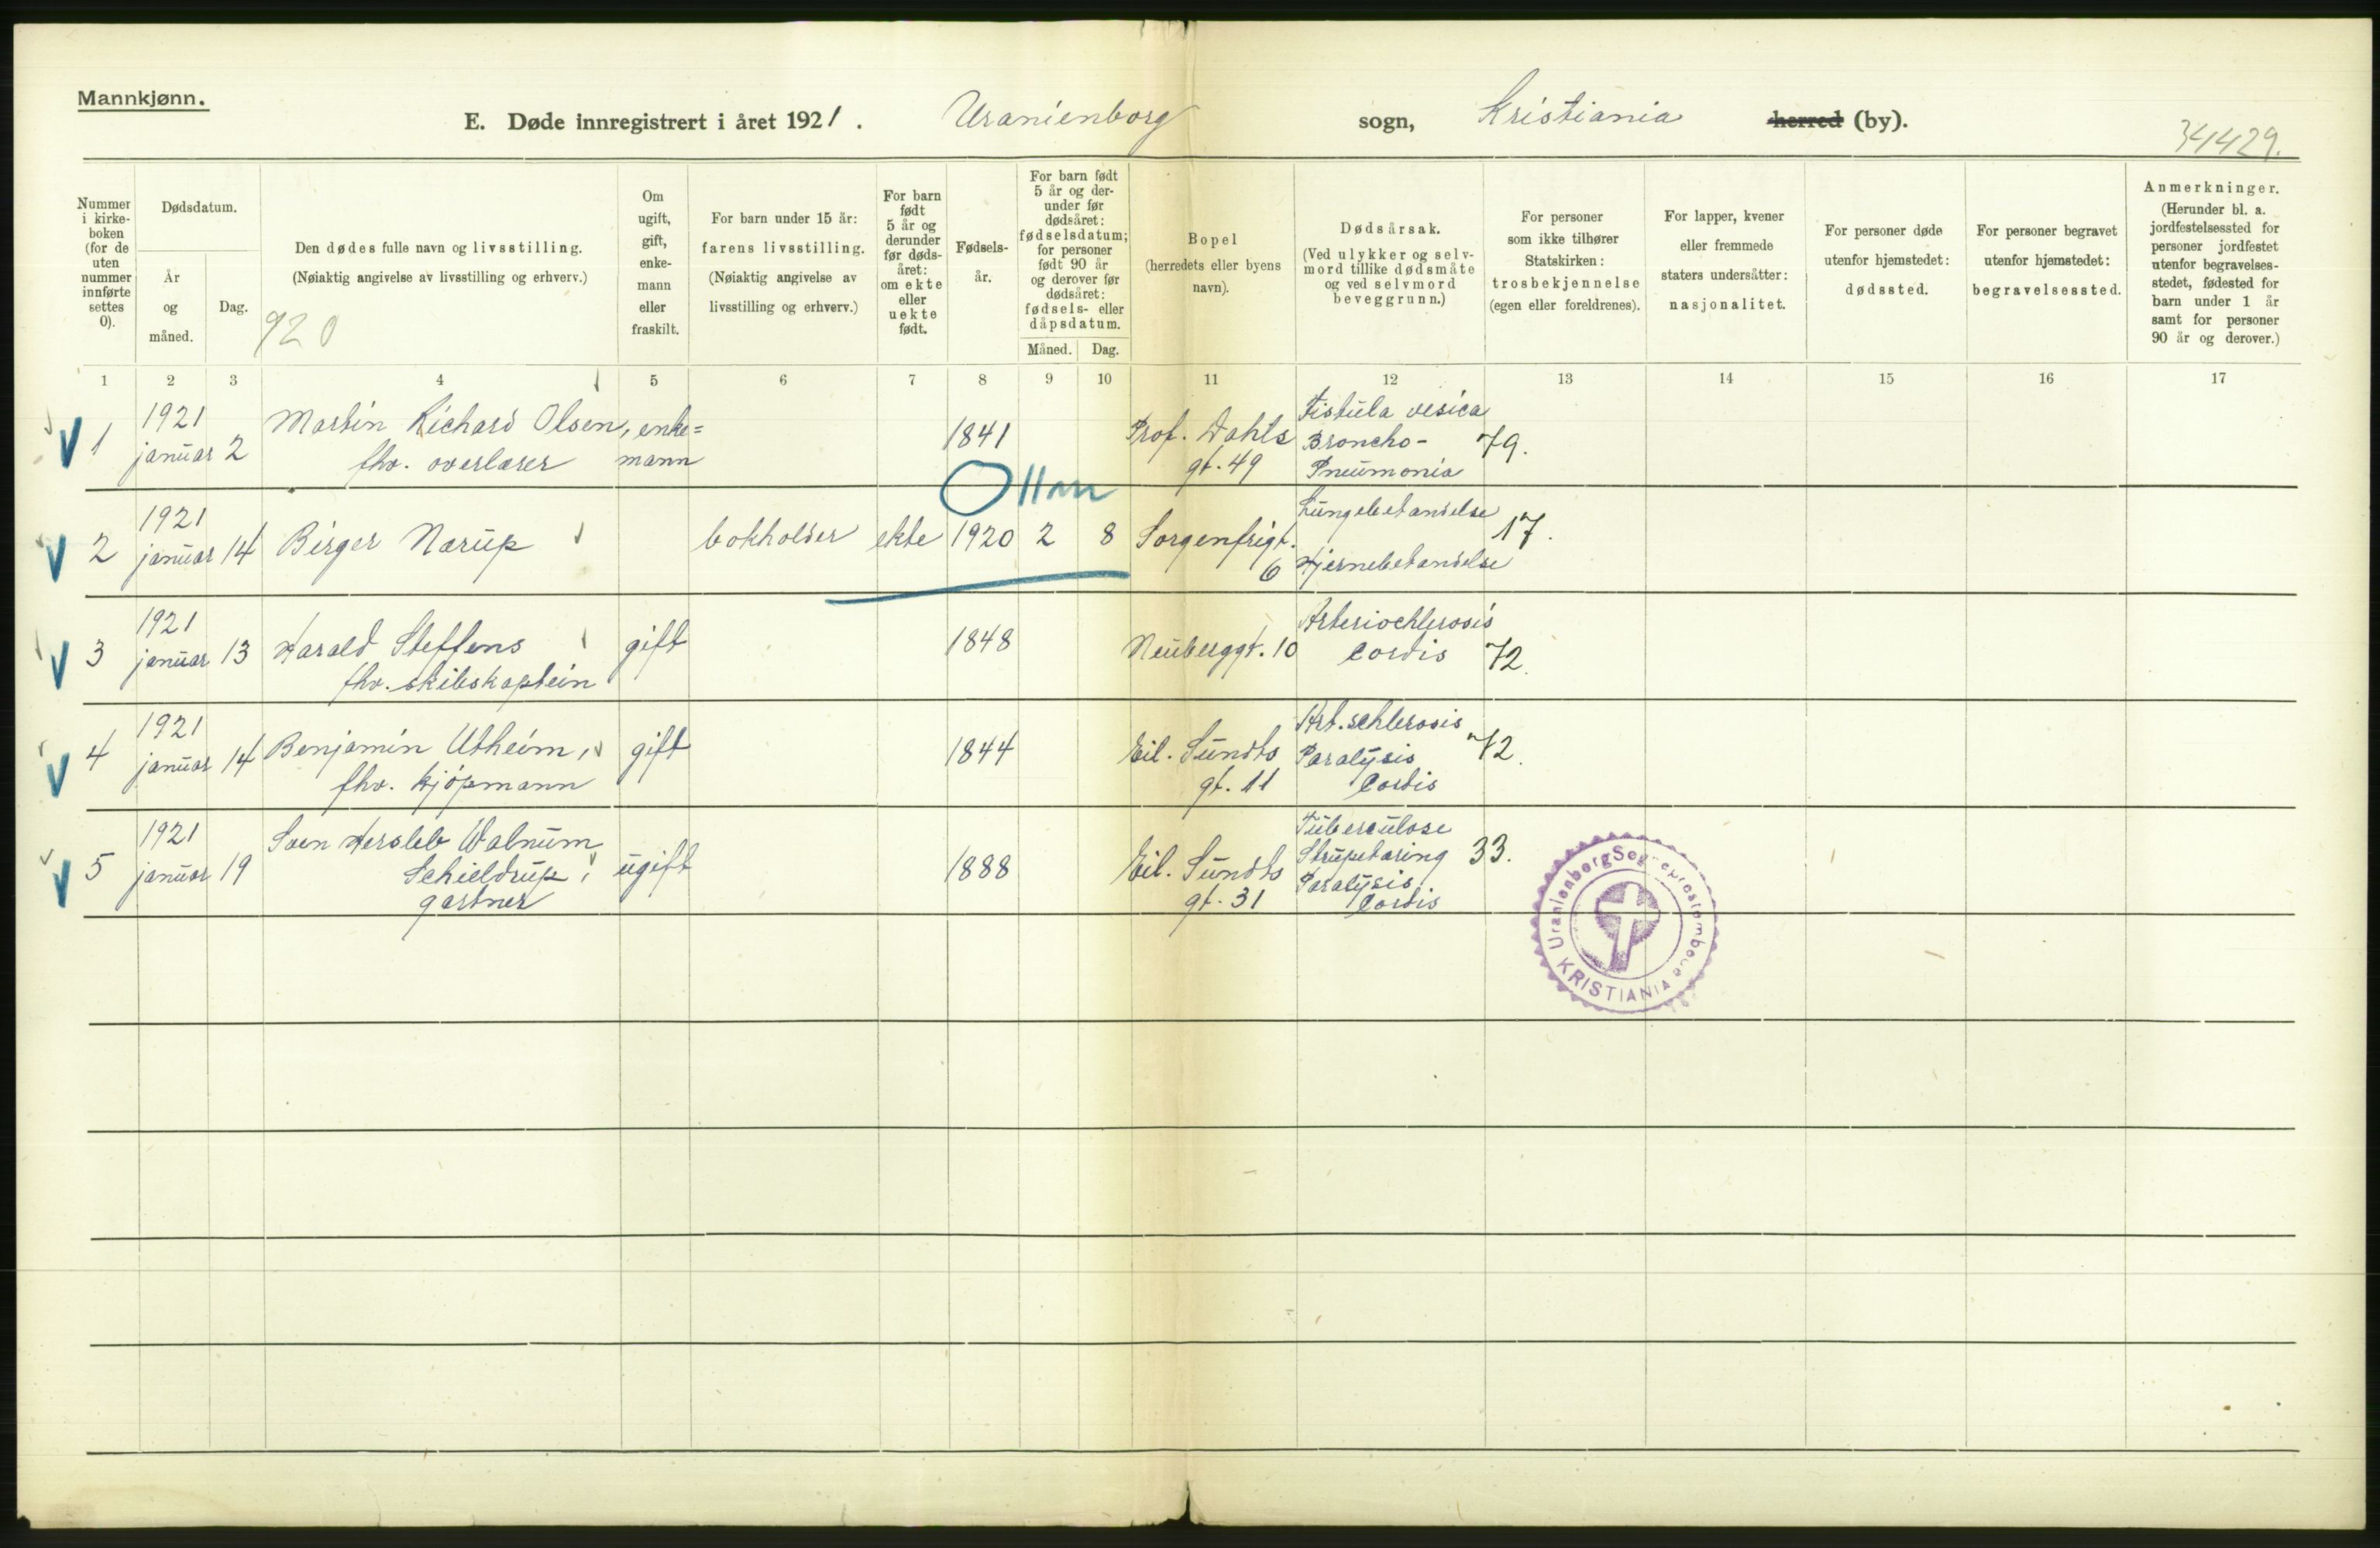 Mannkjønn.
E. Døde innregistrert i året 1921. Uranienborg sogn, Kristiania herred (by).
34429.
Nummer i kirke-boken (for de uten nummer innførte settes 0).
Dødsdatum.
År og måned.
Dag.
Den dødes fulle navn og livsstilling.
(Nøiaktig angivelse av livsstilling og erhverv.)
920
Om ugift, gift, enke-mann eller fraskilt.
For barn under 15 år:
farens livsstilling.
(Nøiaktig angivelse av livsstilling og erhverv.)
For barn født 5 år og derunder før døds-året: om ekte eller uekte født.
Fødsels-år.
For barn født 5 år og der-under før dødsåret: fødselsdatum; for personer født 90 år og derover før dødsåret: fødsels- eller dåpsdatum.
Måned. Dag.
Bopel
(herredets eller byens navn).
Dødsårsak.
(Ved ulykker og selv-mord tillike dødsmåte og ved selvmord beveggrunn.)
For personer som ikke tilhører Statskirken: trosbekjennelse (egen eller foreldrenes).
For lapper, kvener eller fremmede staters undersåtter: nasjonalitet.
For personer døde utenfor hjemstedet: dødssted.
For personer begravet utenfor hjemstedet: begravelsessted.
Anmerkninger.
(Herunder bl. a. jordfestelsessted for personer jordfestet utenfor begravelses-stedet, fødested for barn under 1 år samt for personer 90 år og derover.)
1 2 3 4 5 6 7 8 9 10 11 12 13 14 15 16 17
1 1921 januar 2 Martin Richard Olsen, fhv. overlærer enke=mann 1841 Prof. Dahls gt. 49 Fistula vesica Broncho-Pneumonia 79.
0 11 m
2 1921 januar 14 Birger Nærup bokholder ekte 1920 2 8 Sorgenfrigt. 6 Lungebetændelse Hjernebetændelse 17.
3 1921 januar 13 Harald Steffens fhv. skibskaptein gift 1848 Neuberggt. 10 Arteriochlerosis Cordis 72.
4 1921 januar 14 Benjamin Utheim, fhv. kjøpmann gift 1844 Eil. Sundts gt. 11 Art. schlerosis Paralysis Cordis 72.
5 1921 januar 19 Sven Hersleb Walnum Schieldrup, gartner ugift 1888 Eil. Sundts gt. 31 Tuberculose Strupetæring Paralysis Cordis 33.
Uranienborg Sogneprestembede
KRISTIANIA